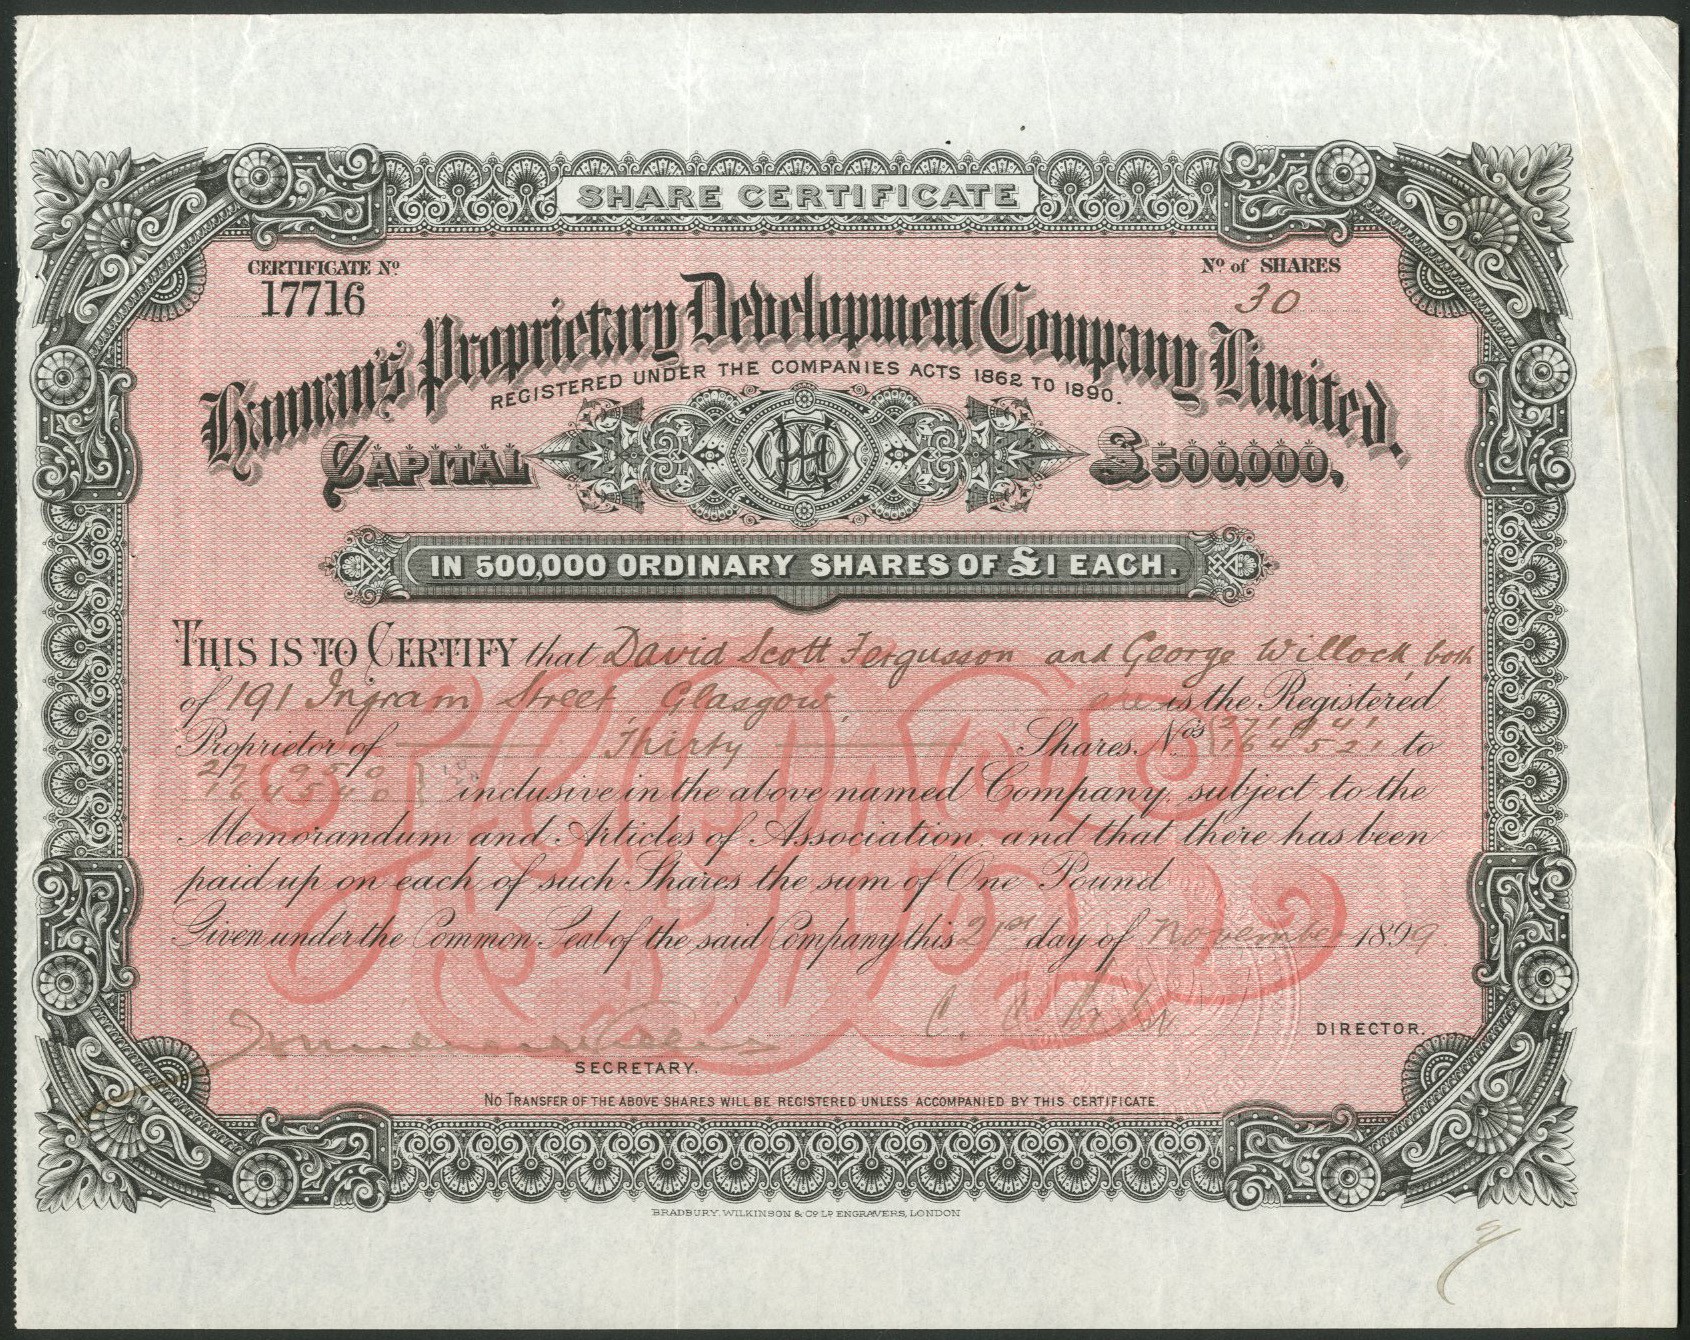 SHARE CERTIFICATE
CERTIFICATE Nº
17716
Nº of SHARES
30
Hannan's Proprietary Development Company Limited.
REGISTERED UNDER THE COMPANIES ACTS 1862 TO 1890.
CAPITAL £500,000,
IN 500,000 ORDINARY SHARES OF £1 EACH.
THIS IS TO CERTIFY that David Scott Fergusson and George Willock, both
of 191 Ingram Street, Glasgow, are is the Registered
Proprietor of Thirty Shares. Nos 271941
164521 to
271950
164540 inclusive in the above named Company, subject to the
Memorandum and Articles of Association, and that there has been
paid up on each of such Shares the sum of One Pound
Given under the Common Seal of the said Company this 21st day of November 1899
DIRECTOR.
SECRETARY.
NO TRANSFER OF THE ABOVE SHARES WILL BE REGISTERED UNLESS ACCOMPANIED BY THIS CERTIFICATE.
BRADBURY, WILKINSON & Cº Lº ENGRAVERS, LONDON